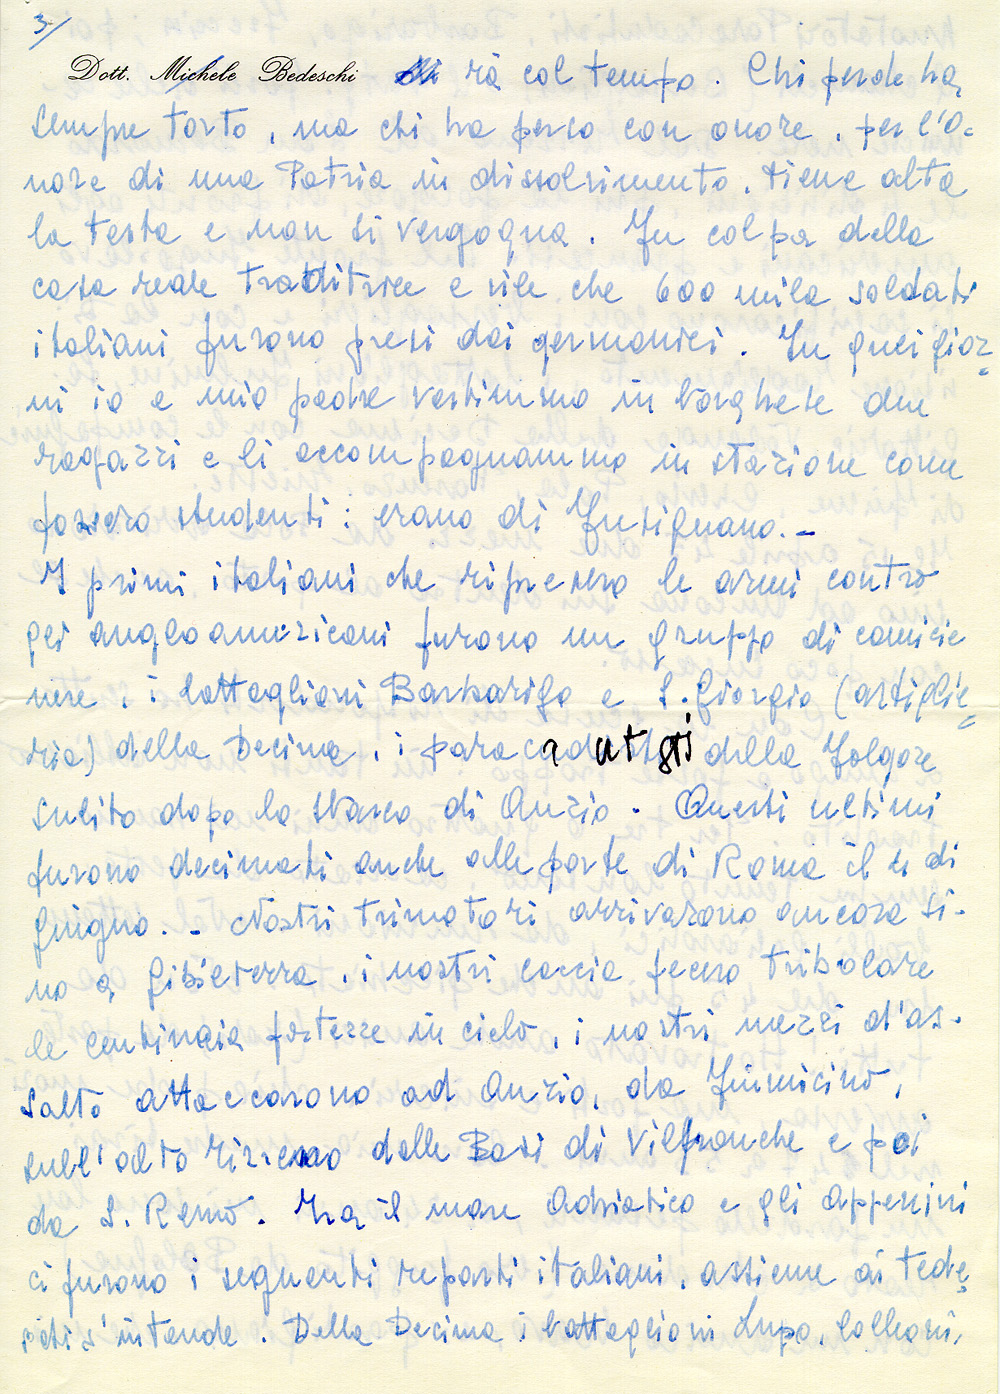 3/
Dott. Michele Bedeschi rà col tempo. Chi perde ha
sempre torto, ma chi ha perso con onore, per l'o-
nore di una Patria in dissolvimento, tiene alta
la testa e non si vergogna. Fu colpa della
casa reale traditrice e vile che 600 mila soldati
italiani furono presi dai germanici. In quei gior=
ni io e mio padre vestimmo in borghese due
ragazzi e li accompagnammo in stazione come
fossero studenti: erano di Fusignano.-
I primi italiani che ripresero le armi contro
gli angloamericani furono un gruppo di camicie
nere, i battaglioni Barbarigo e S. Giorgio (artiglie=
ria) della Decima, i paracadutisti della Folgore
subito dopo lo sbarco di Anzio. Questi ultimi
furono decimati anche alle porte di Roma il 4 di
giugno.- Nostri trimotori arrivarono ancora si-
no a Gibilterra, i nostri caccia fecero tribolare
le centinaia fortezze in cielo, i nostri mezzi d'as-
salto attaccarono ad Anzio, da Fiumicino,
sull'alto Tirreno dalle Basi di Vilfranche e poi
da S. Remo. Fra il mare Adriatico e gli Appennini
ci furono i seguenti reparti italiani, assieme ai tede=
schi s'intende. Della Decima i battaglioni Lupo,